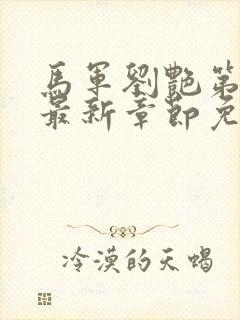 馬軍劉艷第
最新章節免
冷漠的天蝎